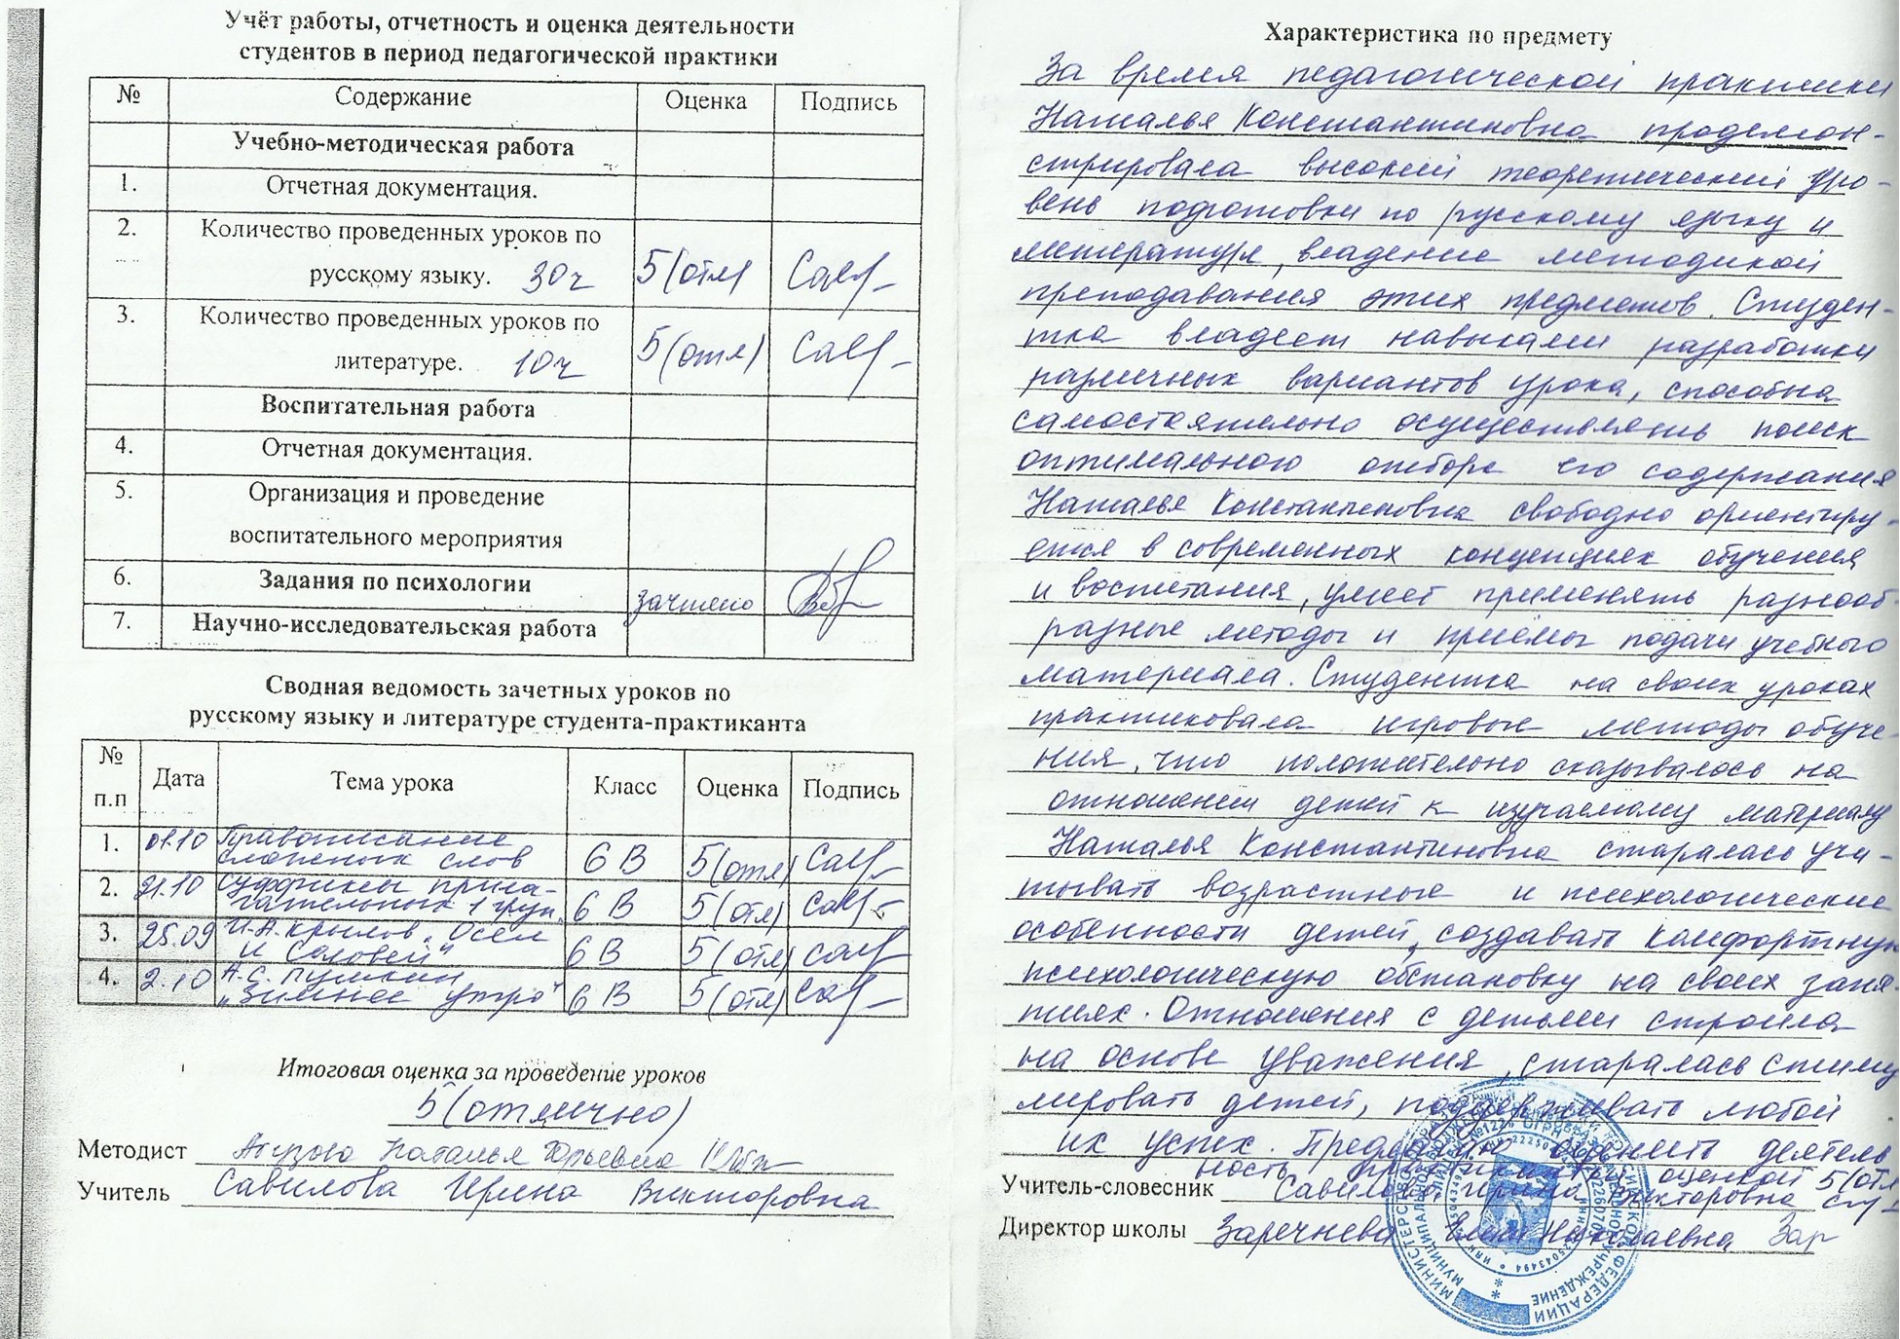 Учёт работы, отчетность и оценка деятельности
студентов в период педагогической практики
№ Содержание Оценка Подпись
Учебно-методическая работа
1. Отчетная документация.
2. Количество проведенных уроков по
русскому языку. 30ч 5(отл)
3. Количество проведенных уроков по
литературе. 10ч 5(отл)
Воспитательная работа
4. Отчетная документация.
5. Организация и проведение
воспитательного мероприятия
6. Задания по психологии зачтено
7. Научно-исследовательская работа
Сводная ведомость зачетных уроков по
русскому языку и литературе студента-практиканта
№ п.п Дата Тема урока Класс Оценка Подпись
1. 01.10 Правописание
сложных слов 6 В 5(отл)
2. 21.10 Суффиксы прила-
гательных 1 груп. 6 В 5(отл)
3. 25.09 И.А. Крылов „Осел
и Соловей" 6 В 5(отл)
4. 2.10 А.С. Пушкин
„Зимнее утро" 6 В 5(отл)
Итоговая оценка за проведение уроков
5(отлично)
Методист Наталья Юрьевна
Учитель Савилова Ирина Викторовна
Характеристика по предмету
За время педагогической практики
Наталья Константиновна продемон-
стрировала высокий теоретический уро-
вень подготовки по русскому языку и
литературе, владение методикой
преподавания этих предметов. Студен-
тка владеет навыками разработки
различных вариантов урока, способна
самостоятельно осуществлять поиск
оптимального отбора его содержания
Наталья Константиновна свободно ориентиру-
ется в современных концепциях обучения
и воспитания, умеет применять разнооб-
разные методы и приёмы подачи учебного
материала. Студентка на своих уроках
практиковала игровые методы обуче-
ния, что положительно сказывалось на
отношении детей к изучаемому материалу
Наталья Константиновна старалась учи-
тывать возрастные и психологические
особенности детей, создавать комфортную
психологическую обстановку на своих заня-
тиях. Отношения с детьми строила
на основе уважения, старалась стиму
лировать детей, поддерживать любой
их успех. Предлагаю оценить деятель
ность оценкой 5(отл
Учитель-словесник Савилова Ирина Викторовна
Директор школы Заречнева Елена Николаевна Зар